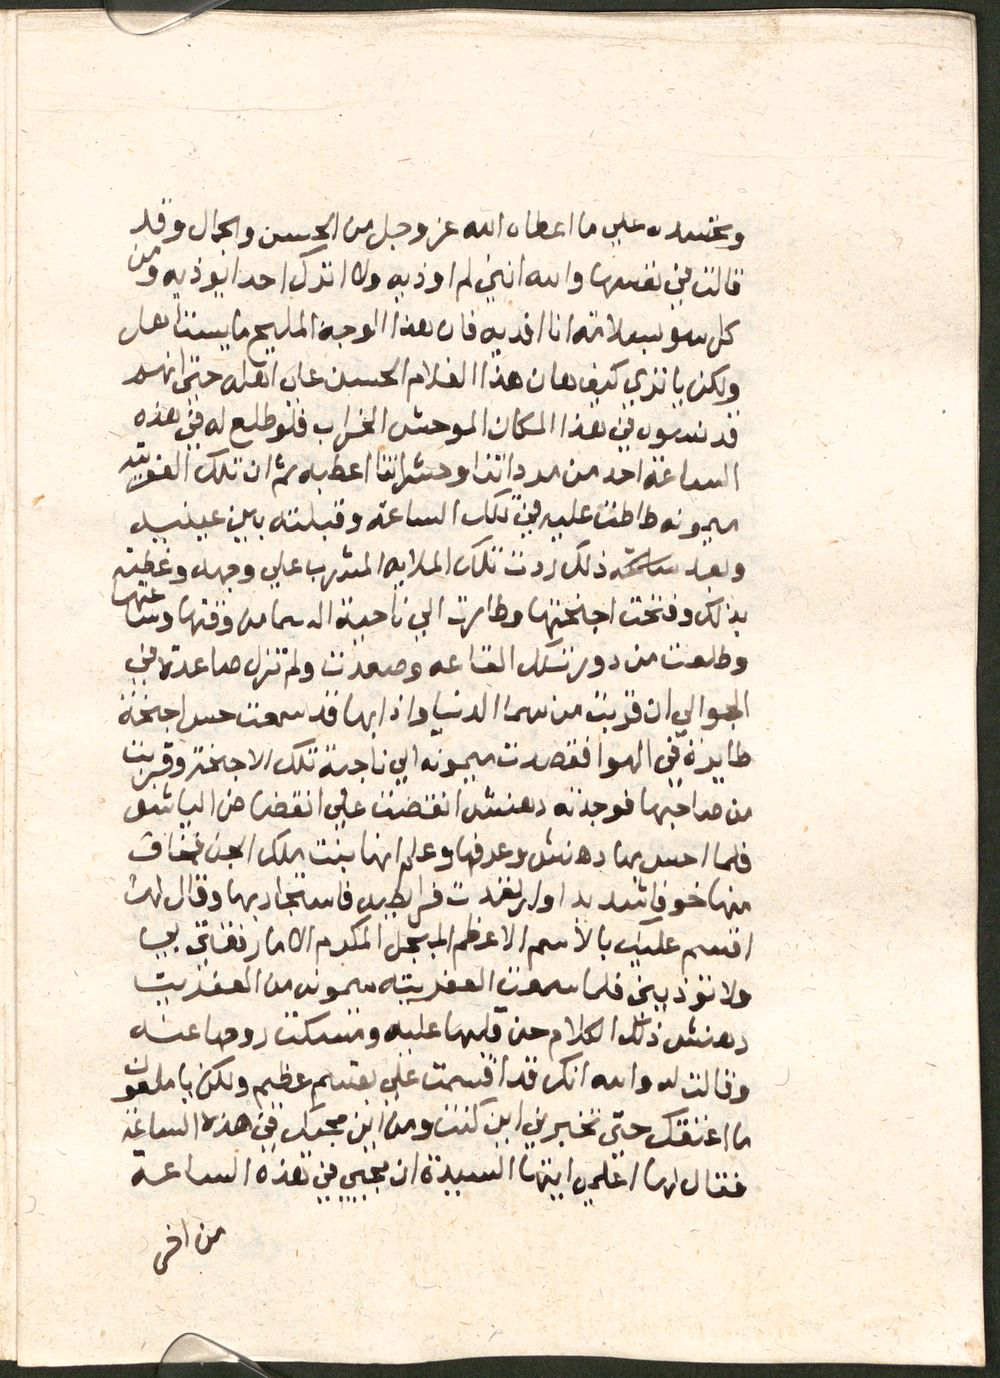 وتحسده علي ما اعطاه الله عز وجل من الحسن والجمال وقد
قالت في نفسها والله انني لم اوذيه ولا اترك احدا يوذيه ومن
كل سو بسلامته انا افديه فان هذا الوجه المليح ما يستاهل
ولكن يا تري كيف هان هذا الغلام الحسن علي اهله حتي انهم
قد نسوه في هذا المكان الموحش الخراب فلو طلع له في هذه
الساعة احد من مردتنا وحشراتنا اعطبه ثم ان تلك العفريته
ميمونه طاطت عليه في تلك الساعه وقبلته بين عينيه
وبعد ذلك ردت تلك الملايه المشرب علي وجهه وغطته
بذلك وفتحت اجنحتها وطارت الي ناحية السما من وقتها وساعتها
وطلعت من دور تلك القاعه وصعدت ولم تزل صاعدة في
الجو الي ان قربت من سما الدنيا واذا بها قد سمعت حس اجنحة
طايرة في الهوا فقصدت ميمونه الي ناحية تلك الاجنحة وقربت
من صاحبها فوجدته دهنش انقضت عليه انقضاض الباشق
فلما احس بها دهنش وعرفها وعلم انها بنت ملك الجن فخاف
منها خوفا شديدا وارتعدت فرايصه فاستجار بها وقال لها
اقسم عليك بالاسم الاعظم المبجل المكرم الا ما رفقتي بي
ولا توذيني فلما سمعت العفريته ميمونه من العفريت
دهنش ذلك الكلام حن قلبها عليه ومسكت روحها عنه
وقالت له والله انك قد اقسمت علي بقسم عظيم ولكن يا ملعون
ما اعتقك حتي تخبرني اين كنت ومن اين مجيك في هذه الساعة
فقال لها اعلمي ايتها السيدة ان مجيي في هذه الساعة
من اخر